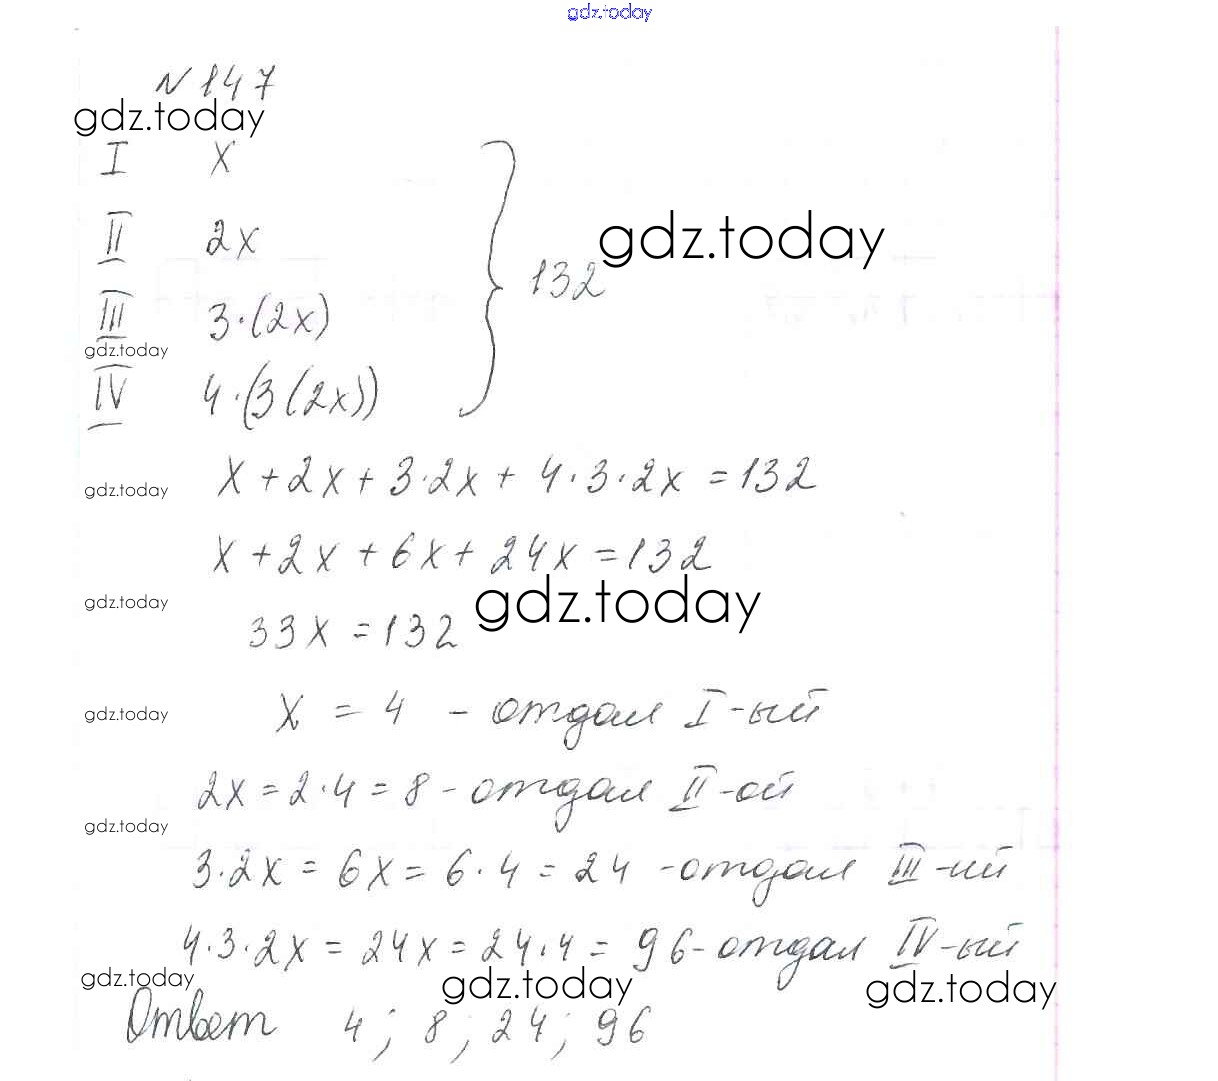 gdz.today
N 147
gdz.today
I x
II 2x
gdz.today
132
III 3·(2x)
gdz.today
IV 4·(3(2x))
x+2x+3·2x+4·3·2x=132
gdz.today
x+2x+6x+24x=132
gdz.today
gdz.today
33x=132
x = 4 - отдал I-ый
gdz.today
2x=2·4=8-отдал II-ой
gdz.today
3·2x=6x=6·4=24 -отдал III-ий
4·3·2x=24x=24·4=96-отдал IV-ый
gdz.today
gdz.today
gdz.today
Ответ 4; 8; 24; 96